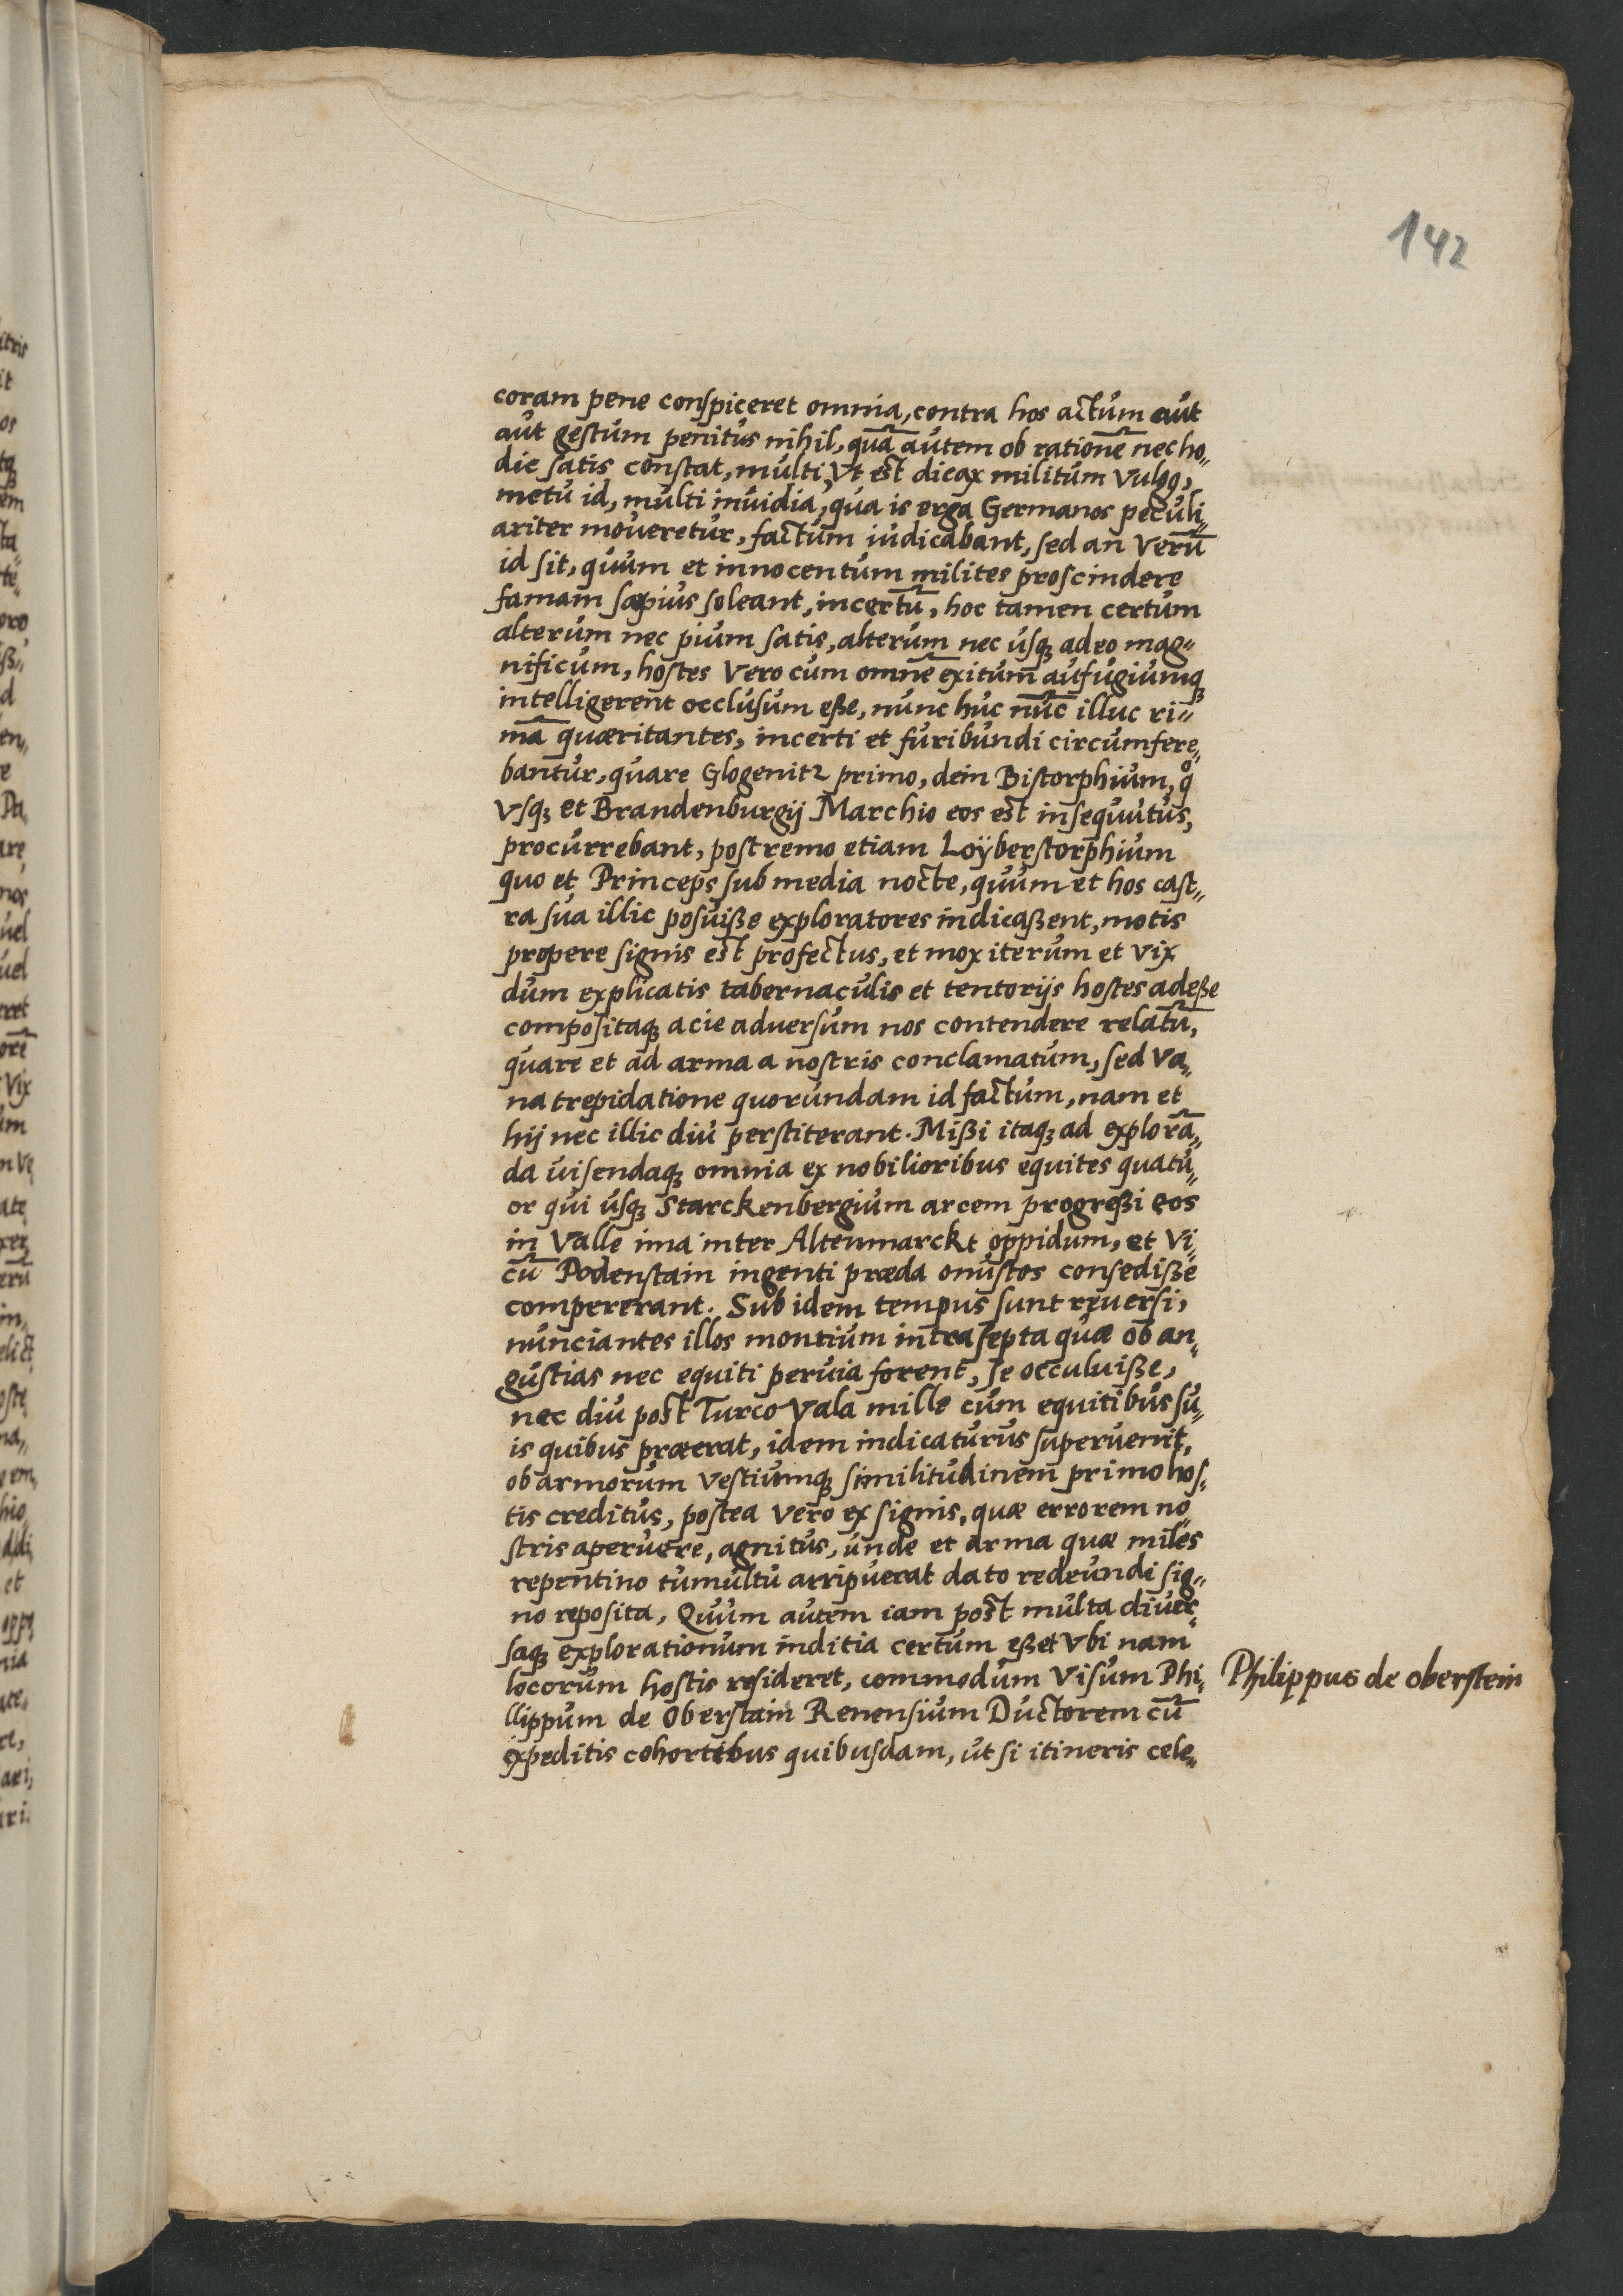 142
coram pene conspiceret omnia, contra hos actum aut
aut gestum penitus nihil, quā autem ob rationē nec ho-
die satis constat, multi, vt est dicax militum vulgo,
metu id, multi inuidia, qua is erga Germanos peculi-
ariter moueretur, factum iudicabant, sed an verū
id sit, quum et innocentum milites proscindere
famam sæpius soleant, incertū, hoc tamen certum
alterum nec pium satis, alterum nec usq; adeo mag-
nificum, hostes vero cum omnē exitum aufugiumq;
intelligerent occlusum eße, nunc huc nūc illuc ri-
mā quæritantes, incerti et furibundi circumfere-
bantur, quare Glogenitz primo, dein Bistorphium, qͦ
vsq; et Brandenburgij Marchio eos est insequutus,
procurrebant, postremo etiam Loÿberstorphium
quo et Princeps sub media nocte, quum et hos cast-
ra sua illic posuiße exploratores indicaßent, motis
propere signis est profectus, et mox iterum et vix
dum explicatis tabernaculis et tentorijs hostes adeße
compositaq; acie aduersum nos contendere relatū,
quare et ad arma a nostris conclamatum, sed va-
na trepidatione quorundam id factum, nam et
hij nec illic diu perstiterant. Mißi itaq; ad explorā-
da uisendaq; omnia ex nobilioribus equites quatu-
or qui usq; Starckenbergium arcem progreßi eos
in valle ima inter Altenmarckt oppidum, et vi-
cū Podenstain ingenti præda onustos consediße
compererant. Sub idem tempus sunt reuersi,
nunciantes illos montium intra septa quæ ob an-
gustias nec equiti peruia forent, se occuluiße,
nec diu post Turco Vala mille cum equitibus su-
is quibus præerat, idem indicaturus superuenit,
ob armorum vestiumq; similitudinem primo hos-
tis creditus, postea vero ex signis, quæ errorem no-
stris aperuere, agnitus, unde et arma quæ miles
repentino tumultu arripuerat dato redeundi sig-
no reposita, Quum autem iam post multa diuer-
saq; explorationum inditia certum eßet vbi nam
locorum hostis resideret, commodum visum Phi-
llippum de Oberstain Renensium Ductorem cū
expeditis cohortibus quibusdam, ut si itineris cele-
Philippus de oberstein